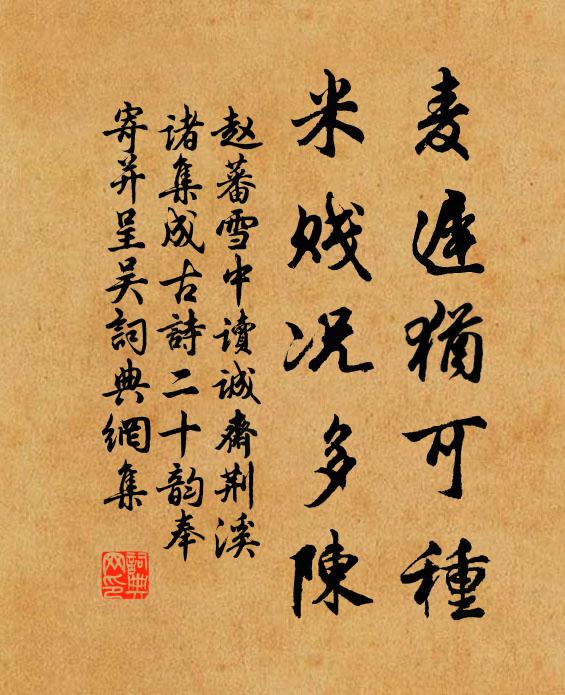 麦遲猶可種
米賤况多陳
赵蕃雪中讀诚齋荆溪
诸集成古詩二十韵奉
寄并呈吴詞典網集
詞典
网印